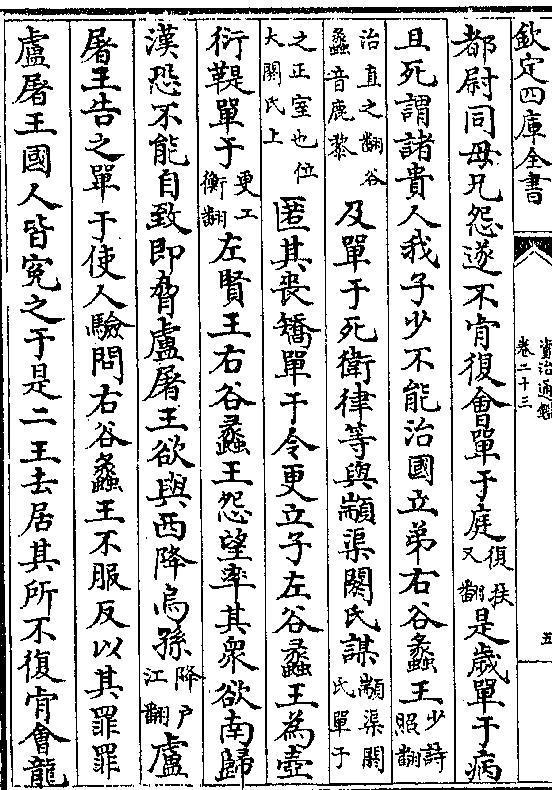 欽定四庫全書
資治通鑑
卷二十三
五
都尉同母兄怨遂不肯復會單于庭復扶又翻是歲單于病
且死謂諸貴人我子少不能治國立弟右谷蠡王少詩照翻
治直之翻谷蠡音鹿黎及單于死衛律等與顓渠閼氏謀顓渠閼氏單于
之正室也位大閼氏上匿其喪矯單于令更立子左谷蠡王為壺
衍鞮單于更工衡翻左賢王右谷蠡王怨望率其衆欲南歸
漢恐不能自致即脅盧屠王欲與西降烏孫降戶江翻盧
屠王告之單于使人驗問右谷蠡王不服反以其罪罪
盧屠王國人皆冤之于是二王去居其所不復肯會龍